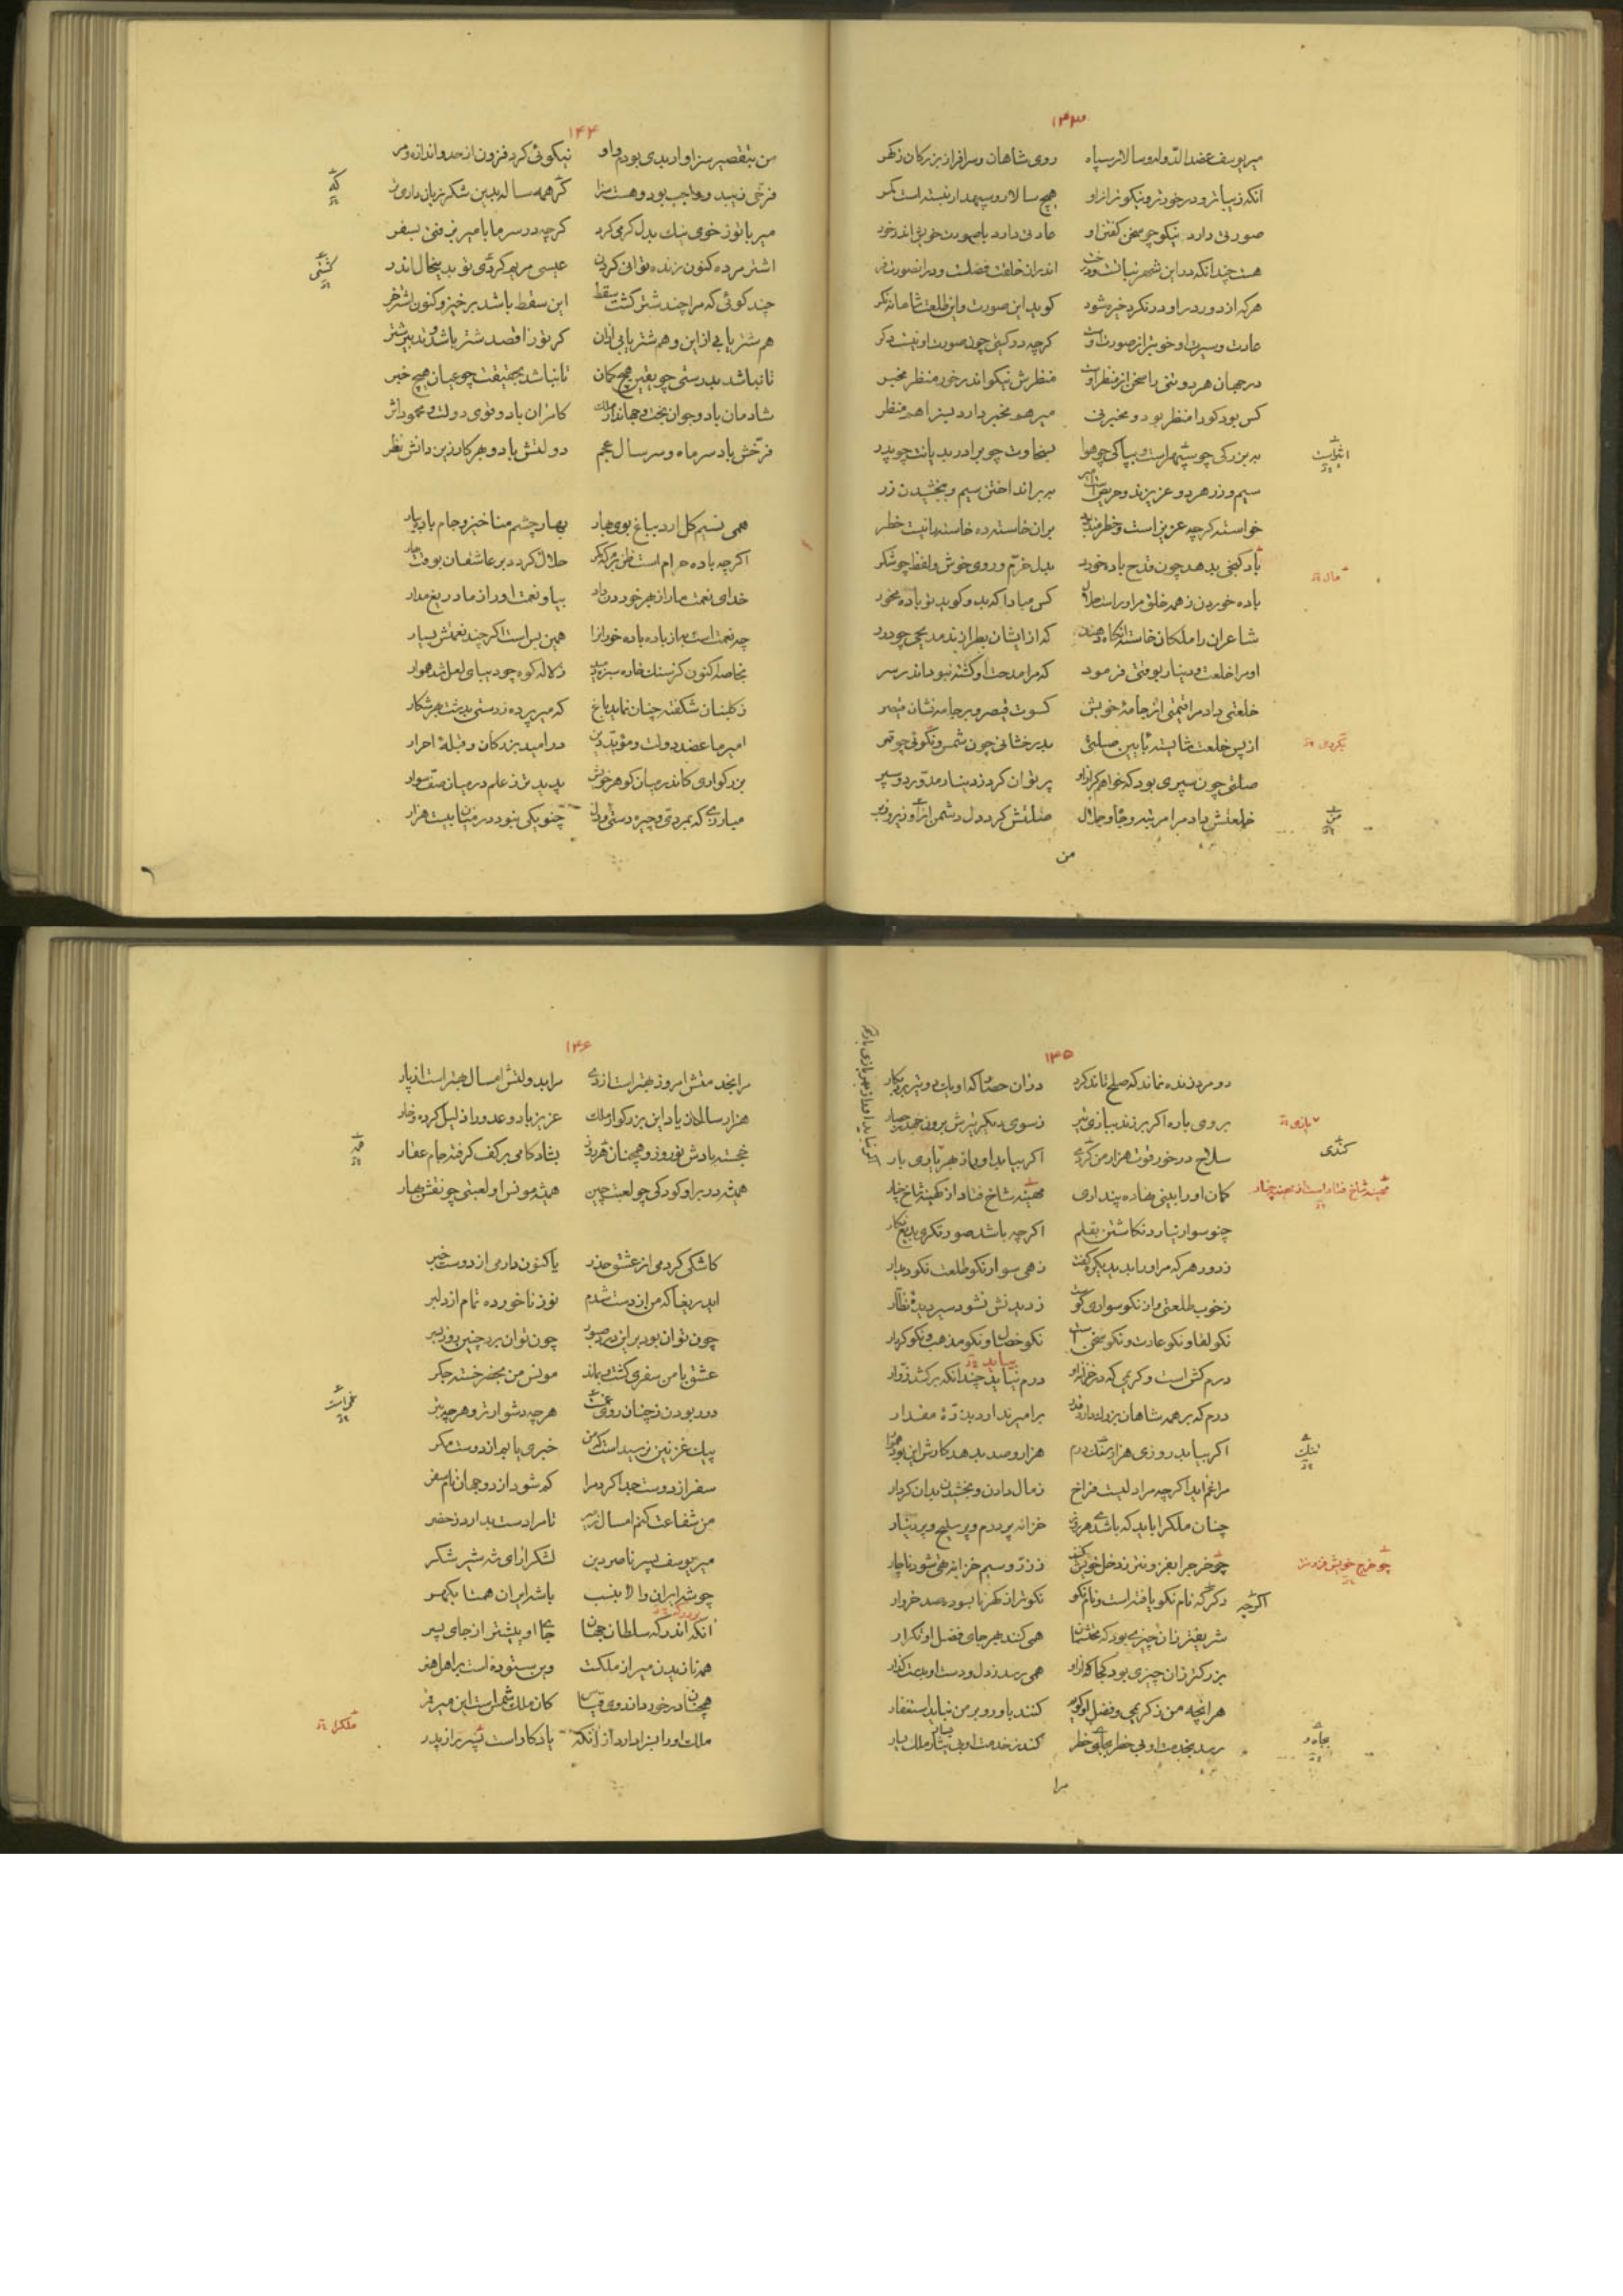 ۱۴۳
میر یوسف عضد الدوله و سالار سپاه روی شاهان و سرافراز بزرکان ز کهر
آنکه زیباتر و درخورتر و نیکوتر از او هیچ سالار و سپهدار نبسته است کمر
صورتی دارد نیکو چو سخن کفتن او عادتی دارد با صورت خویش اندر خور
هست چندانکه در این شهر نبات و درخت اندر آن خلقت فضلست و در آن صورت فر
هرکه از دور در او درنکرد خیره شود کوید این صورت و این طلعت شاهانه نکر
عادت و سیرت او خوبتر از صورت اوست کرچه در کیتی چون صورت او نیست دکر
در جهان هر دو تنی را سخن از منظر اوست منظرش نیکو اندر خور منظر مخبر
کس بود کو را منظر بود و مخبر نی میر هم مخبر دارد بسزا هم منظر
به بزرکی چو سپهر است و بپاکی چو هوا بسخاوت چو برادر بدیانت چو پدر
سیم و زر هر دو عزیزند و حریص است میر بر انداختن سیم و ببخشیدن زر
خواسته کرچه عزیز است و خطرمند بود بر آن خاسته ده خاسته را نیست خطر
باد کیتی بدهد چون قدح باده خورد بدل خرم و روی خوش و لفظ چو شکر
مال
باده خوردن ز همه خلق مر او راست حلال کس مبادا که بدو کوید تو باده مخور
شاعران را ملکان خاسته آنکاه دهند که از ایشان بطرازند مدیحی چو درر
او مرا خلعت و دینار بوقتی فرمود که مرا مدحت او کشته نبود اندر سر
خلعتی داد مرا قیمتی از جامه خویش کسوت قیصر و بر جامه نشان قیصر
از پس خلعت شایسته بآیین صلتی بدرخشانی چون شمس و نکوئی چو قمر
صلتی چون سپری بود که خواهم کر از او پر توان کرد ز دینار مدور دو سپر
خلعتش داد مرا مرتبه و جاه و جلال صلتش کرد دل دشمن
من
۱۴۴
من بتقصیر سزاوار بدی بودم و او نیکوئی کرد فزون از حد و اندازه و مر
فرخی زیبد و واجب بود و هست سزا کر همه ساله بدین شکر زبان داری تر
میر با تو ز خوی نیک بدل کرمی کرد کرچه در سرما با میر برفتی بسفر
اشتر مرده کنون زنده توانی کردن عیسی مریم کردی تو بدینحال اندر
چند کوئی که مرا چند شتر کشت سقط این سقط باشد برخیز و کنون اشتر خر
هم شتر یابی از این و هم شتر یابی از آن کر تو را قصد شتر باشد و تدبیر شتر
تا نباشد بدرستی چو یقین هیچ کمان تا نباشد بحقیقت چو عیان هیچ خبر
شادمان باد و جوانبخت و جهاندار ملک کامران باد و قوی دولت و محمود اثر
فرخش باد سر ماه و سر سال عجم دولتش باد و بهر کار زین دانش نظر
همی نسیم کل آرد بباغ بوی بهار بهار چهر منا خیز و جام باده بیار
اکرچه باده حرام است ظن برم که مکر حلال کردد بر عاشقان بوقت بهار
خدای نعمت ما را ز بهر خوردن داد بیا و نعمت او را ز ما دریغ مدار
چه نعمت است به از باده باده خواران را همین بس است اکرچند نعمتش بسیار
بخاصه اکنون کز سنک خاره سبزه دمید ز لاله کوه چو دیبای لعل شد هموار
ز کلبنان شکفته چنان نماید باغ که میر پره زدستی بدشت بهر شکار
امیر ما عضد دولت و مؤید دین در امید بزرکان و قبله احرار
بزرکواری کاندر میان کوهر خویش پدید تر ز علم در میان صف سوار
مبارزی که بمردی و چیره دستی و دل چنو یکی نبود در میان بیست هزار
۱۴۵
دو مرد زنده نماند که صلح تاند کرد در آن حصار که او یک دو تیر برد بکار
بروی باره اکر برزند ببازی تیر ز سوی دیکر تیرش برون جهد ز حصار
بازی
سلاح در خور قوت هزار من کردی اکر بیابد او را ز بهر بازی یار
کندی
کمان او را بینی فتاده پنداری مهینه شاخ فتاد از کهینه شاخ چنار
چنو سوار نیارد نکاشتن بقلم اکرچه باشد صورتکری بدیع نکار
ز دور هر که مر او را بدید یکره کفت زهی سوار نکو طلعت نکو دیدار
ز خوب طلعتی و از نکو سواری کوست ز دیدنش نشود سیر دیده نظار
نکو لقا و نکو عادت و نکو سخن است نکو خصال و نکو مذهب و نکو کردار
درم کش است و کریمی که در خزانه او درم نیاید چندانکه برکشد زوار
درم که بر همه شاهان بزرک دارد قدر بر امیر ندارد بذره مقدار
اکر بیابد روزی هزار تنک درم هزار و صد بدهد کارش این بود هموار
مرا غم آید اکرچه مرا دلیست فراخ ز مال دادن و بخشیدن بدان کردار
چنان ملک را باید که باشدی هر روز خزانه پر درم و پر سلیح و پر دینار
چو خرج را بفزونتر ز دخل خویش کند ز زر و سیم خزانه تهی شود ناچار
دکر که نام نکو یافته است و نام نکو نکوتر از کهر نابسوده صد خروار
اکرچه
شریفتر ز آن چیزی بود که محتشمان همی کنند بهر جای فضل او تکرار
بزرکتر ز آن چیزی بود کجا که از او همی رسد ز دل و دست او
هر آنچه من ز کریمی و فضل او کویم کنند باور و بر من نیاید استغفار
رسد بخدمت او بی خطر بجاه و خطر کند ز خدمت او بی یسار ملک یسار
مرا
۱۴۶
مرا بخدمتش امروز بهتر است از دی مرا بدولتش امسال بهتر است از پار
هزار سال زیاد این بزرکوار ملک عزیز باد و عدو را ذلیل کرده و خوار
خجسته بادش نوروز و همچنان همه روز بشادکامی بر کف کرفته جام عقار
همیشه در بر او کودکی چو لعبت چین همیشه مونس او لعبتی چو نقش بهار
کاشکی کردمی از عشق حذر یا کنون دارمی از دوست خبر
ای دریغا که من از دست شدم نوز ناخورده تمام از دل بر
چون توان بود بر این درد صبور چون توان برد چنین روز بسر
عشق با من سفری کشت و بماند مونس من بحضر خسته جکر
دور بودن ز چنان روی هر چه دشوارتر و هر چه بتر
پیک غزنین نرسید است که من خبری یابم از دوست مکر
سفر از دوست جدا کرد مرا کم شود از دو جهان نام سفر
من شفاعت کنم امسال ز میر تا مرا دست بدارد ز حضر
میر یوسف پسر ناصر دین لشکر آرای شه شیر شکر
چو شه ایران والا بنسب با شه ایران همتا بکهر
آنکه اندر که سلطان جهان جای او پیشتر از جای پسر
همه نازیدن میر از ملکست وین ستوده است بر اهل هنر
همچنان در خورد از روی قیاس کان ملک شمس است این میر قمر
ملک او را بسزا دارد از آنکه یادکار است ز پدر